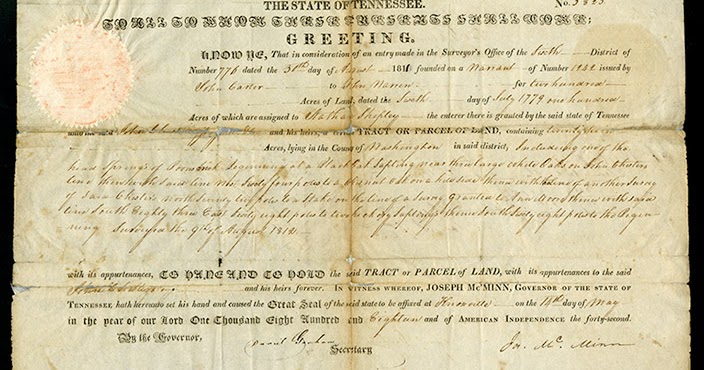 THE STATE OF TENNESSEE. No. 3825
TO ALL TO WHOM THESE PRESENTS SHALL COME;
GREETING.
KNOW YE, That in consideration of an entry made in the Surveyor's Office of the Sixth District of
Number 776 dated the 31st day of August 181 founded on a Warrant of Number 122 issued by
John Carter to John Warren for two hundred
Acres of Land, dated the Sixth day of July 1779 one hundred
Acres of which are assigned to Nathan Shipley the enterer there is granted by the said state of Tennessee
unto the said John and his heirs, a certain TRACT OR PARCEL OF LAND, containing
Acres, lying in the County of Washington in said district, Including one of the
head Springs of Beginning at a Black oak Sapling near three large white oaks on John Chesters
line thence with said line West Sixty four poles to a Chesnut oak on a hill side thence with a line of another Survey
of Said Chester north Seventy two poles to a Stake on the line of a Survey Granted to thence with said
line South Eighty three East Sixty eight poles to two hickory Saplings thence South Sixty eight poles to the Begin
ning Surveyed the 9th of August 1812
with its appurtenances, TO HAVE AND TO HOLD the said TRACT or PARCEL of LAND, with its appurtenances to the said
John and his heirs forever. IN WITNESS WHEREOF, JOSEPH McMINN, GOVERNOR OF THE STATE OF
TENNESSEE hath hereunto set his hand and caused the GREAT SEAL of the said state to be affixed at Knoxville on the 14th day of May
in the year of our Lord One Thousand Eight Hundred and Eighteen and of AMERICAN INDEPENDENCE the forty-second.
By the Governor,
Daniel Graham Jos. McMinn
Secretary